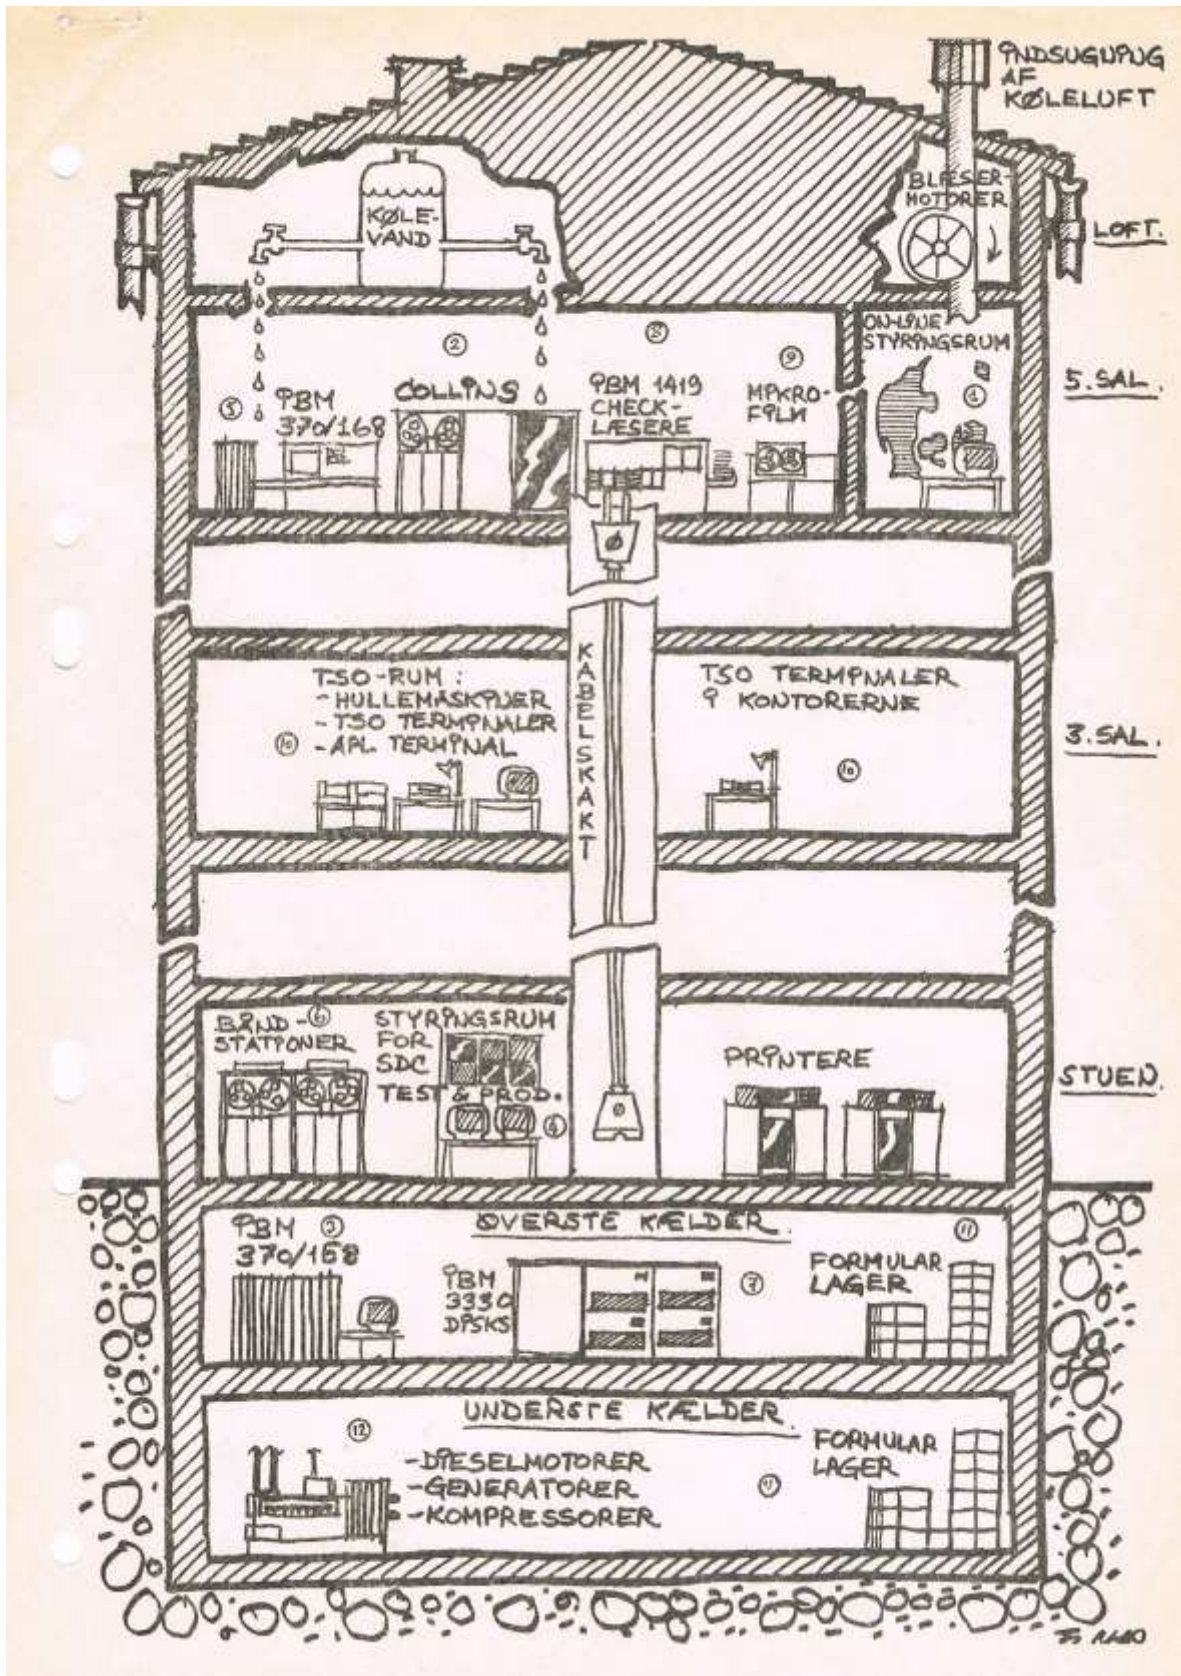 INDSUGNING
AF
KØLELUFT
BLÆSER-
MOTORER
KØLE-
VAND
LOFT.
ON-LINE
STYRINGSRUM
1
2
8
9
5
IBM
370/168
COLLINS
IBM 1419
CHECK-
LÆSERE
MIKRO-
FILM
5. SAL.
KABELSKAKT
TSO-RUM:
- HULLEMASKINER
- TSO TERMINALER
10
- APL TERMINAL
TSO TERMINALER
I KONTORERNE
10
3. SAL.
BÅND-
STATIONER
6
STYRINGSRUM
FOR
SDC
TEST & PROD.
PRINTERE
STUEN.
ØVERSTE KÆLDER.
IBM
370/168
IBM
3330
DISKS
7
11
FORMULAR
LAGER
UNDERSTE KÆLDER.
12
- DIESELMOTORER
- GENERATORER
- KOMPRESSORER
11
FORMULAR
LAGER